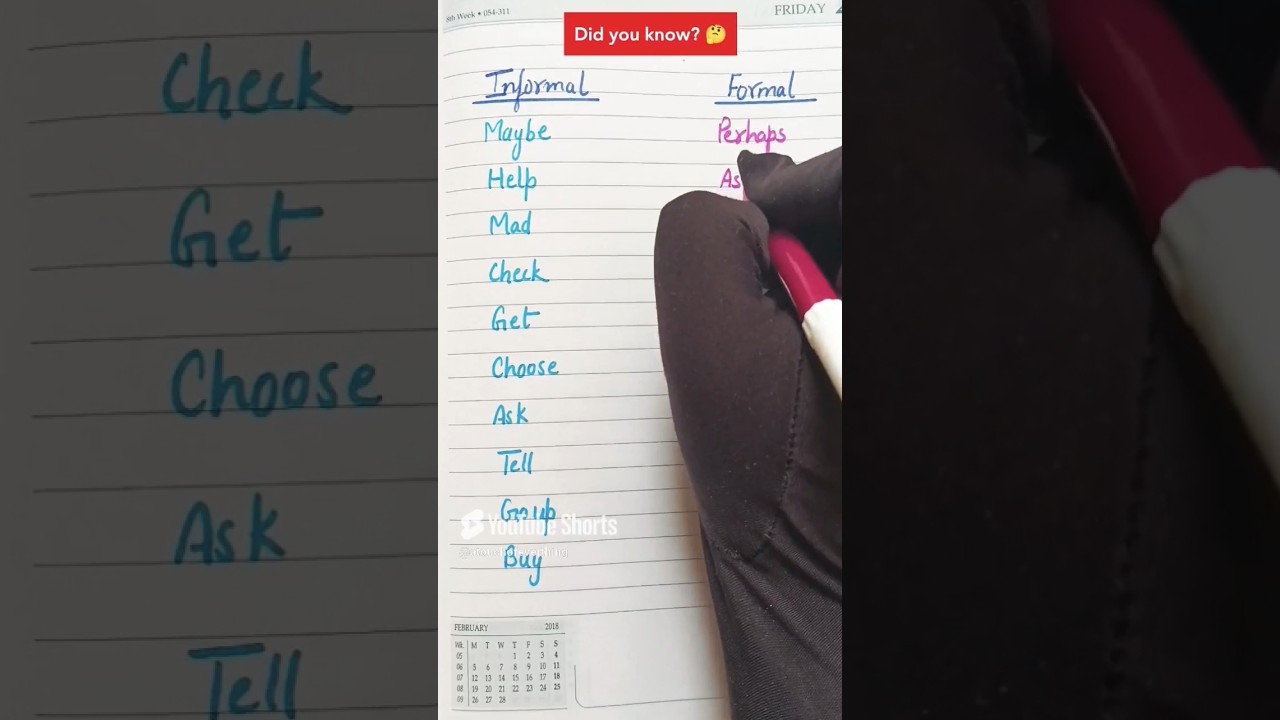 8th Week • 054-311
FRIDAY
Did you know? 🤔
Informal Formal
Maybe Perhaps
Help As
Mad
Check
Get
Choose
Ask
Tell
Group
Buy
YouTube Shorts
FEBRUARY 2018
Wk. M T W T F S S
05 1 2 3 4
06 5 6 7 8 9 10 11
07 12 13 14 15 16 17 18
08 19 20 21 22 23 24 25
09 26 27 28
Check
Get
Choose
Ask
Tell